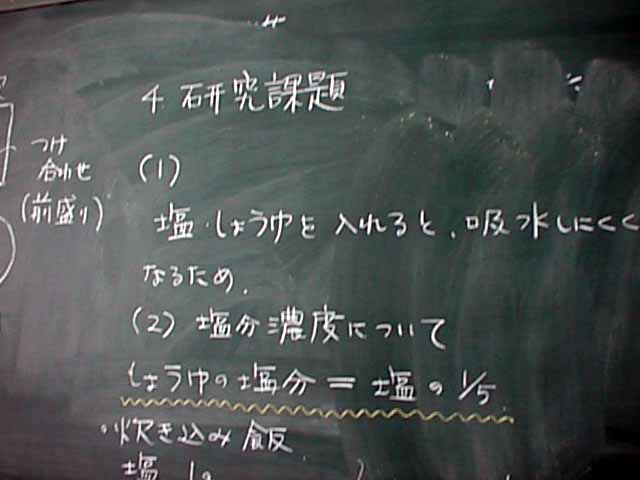 4 研究課題
つけ
合わせ
(前盛り)
(1)
塩・しょうゆを入れると、吸水しにくく
なるため.
(2) 塩分濃度について
しょうゆの塩分 = 塩の 1/5
・炊き込み飯
塩